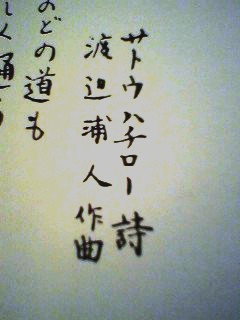 サトウハチロー 詩
渡辺浦人 作曲
のどの道も
しく通